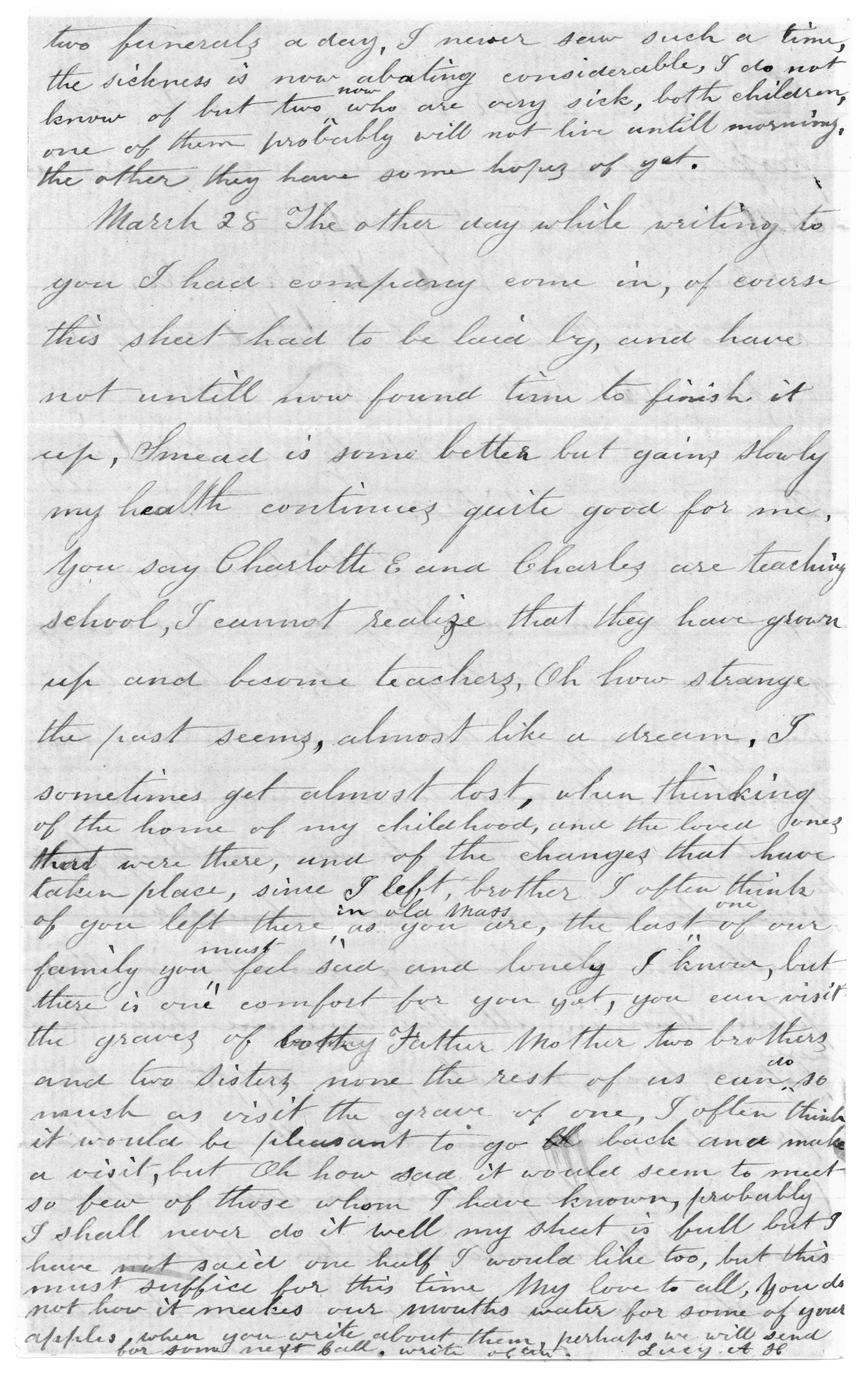 two funerals a day, I never saw such a time,
the sickness is now abating considerable, I do not
know of but two now who are very sick, both children,
one of them probably will not live untill morning,
the other they have some hopes of yet.
March 28 The other day while writing to
you I had company come in, of course
this sheet had to be laid by, and have
not untill now found time to finish it
up, Smead is some better but gains slowly
my health continues quite good for me,
You say Charlotte E and Charles are teaching
school, I cannot realize that they have grown
up and become teachers, Oh how strange
the past seems, almost like a dream, I
sometimes get almost lost, when thinking
of the home of my childhood, and the loved ones
that were there, and of the changes that have
taken place, since I left, brother I often think
of you left there in old Mass as you are, the last one of our
family you must feel sad and lonely I know, but
there is one comfort for you yet, you can visit
the graves of Father Mother two brothers
and two Sisters none the rest of us can do so
much as visit the grave of one, I often think
it would be pleasant to go back and make
a visit, but Oh how sad it would seem to meet
so few of those whom I have known, probably
I shall never do it well my sheet is full but I
have not said one half I would like too, but this
must suffice for this time My love to all, You do
not how it makes our mouths water for some of your
apples, when you write about them, perhaps we will send
for some next fall. write often. Lucy A H